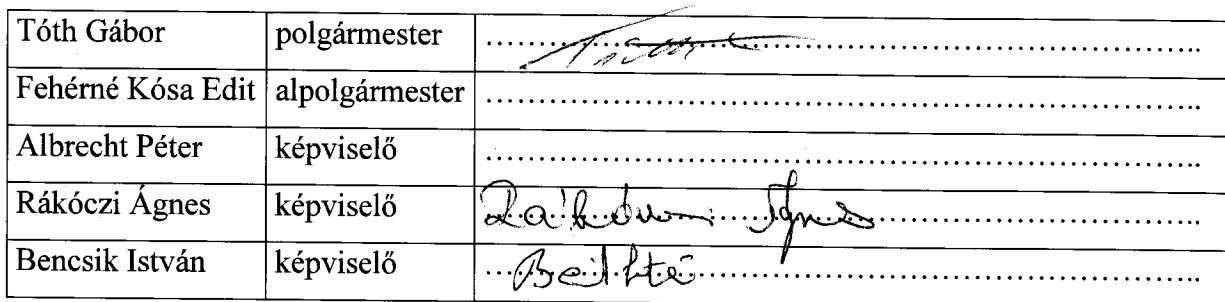 Tóth Gábor polgármester
Fehérné Kósa Edit alpolgármester
Albrecht Péter képviselő
Rákóczi Ágnes képviselő Rákóczi Ágnes
Bencsik István képviselő